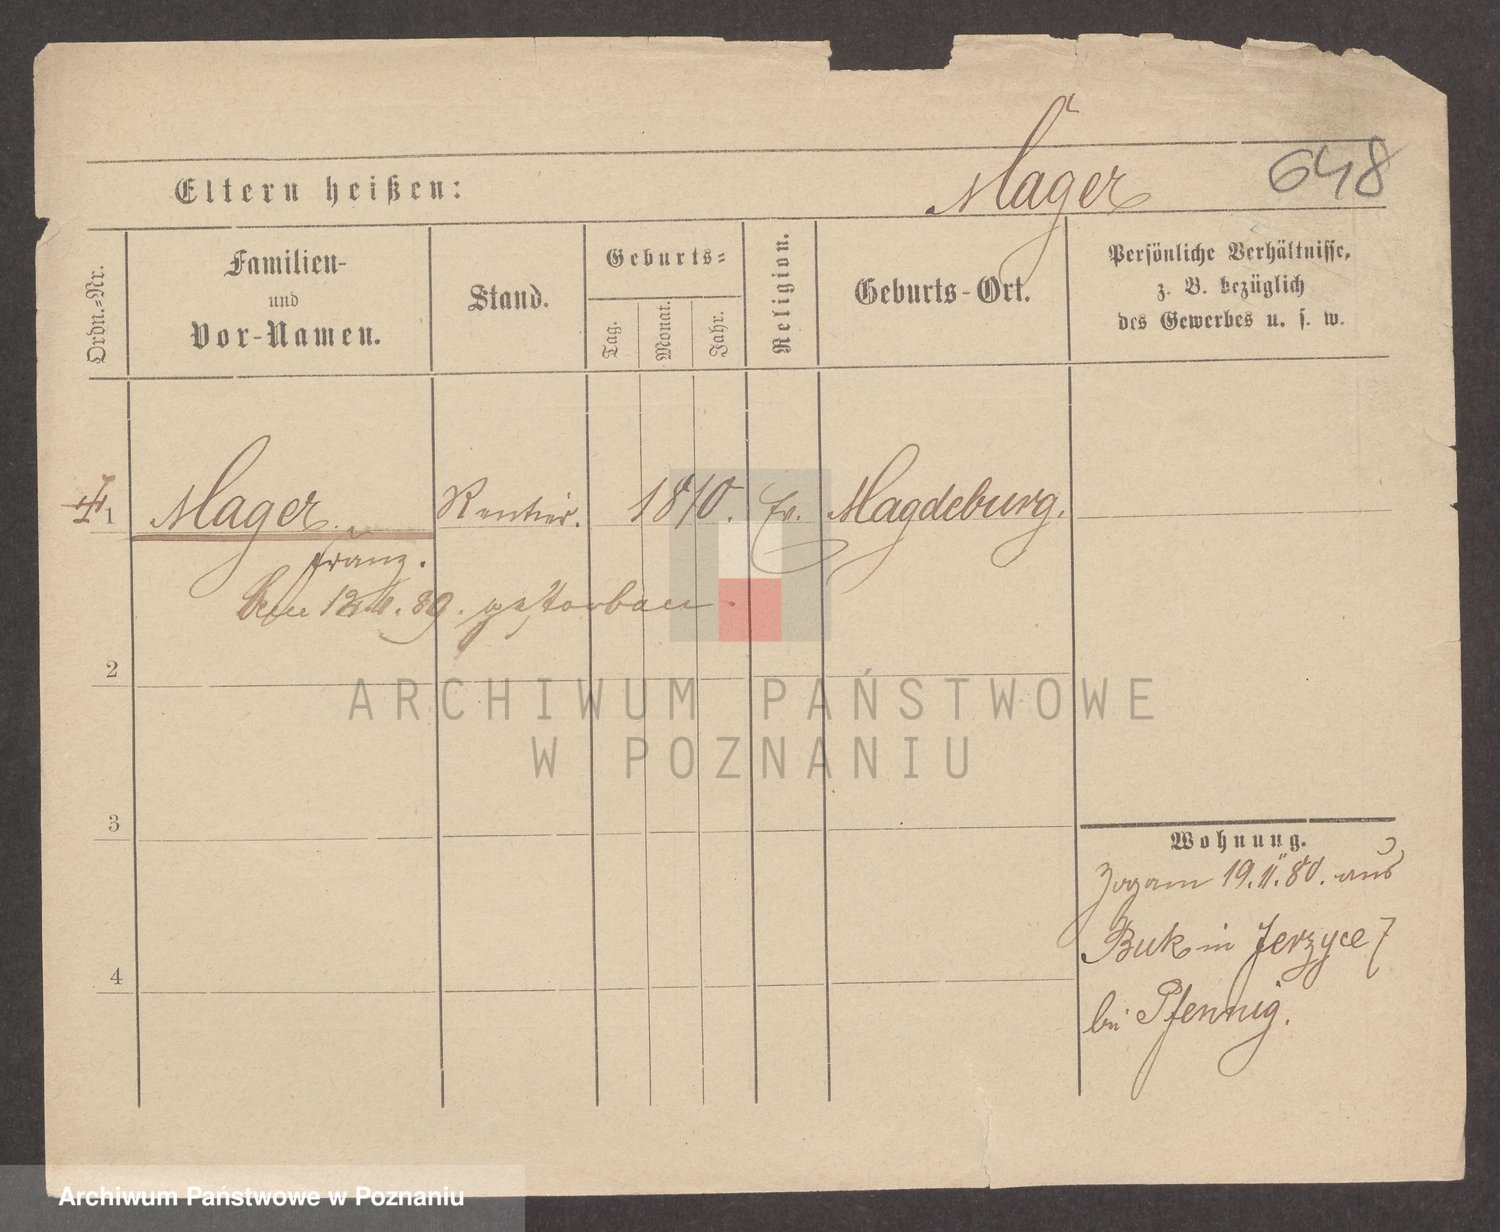 Mager
648
Eltern heißen:
Ordn.-Nr.
Familien-
und
Vor-Namen.
Stand.
Geburts-
Tag.
Monat.
Jahr.
Religion.
Geburts-Ort.
Persönliche Verhältnisse,
z. B. bezüglich
des Gewerbes u. s. w.
1
Mager
Rentier.
1810.
Ev.
Magdeburg.
Franz.
Den 12. 4. 89. gestorben.
2
3
4
ARCHIWUM PAŃSTWOWE
W POZNANIU
Wohnung.
Zog am 19. 11. 80. aus
Buk in Jerzyce 7
bei Pfennig.
Archiwum Państwowe w Poznaniu